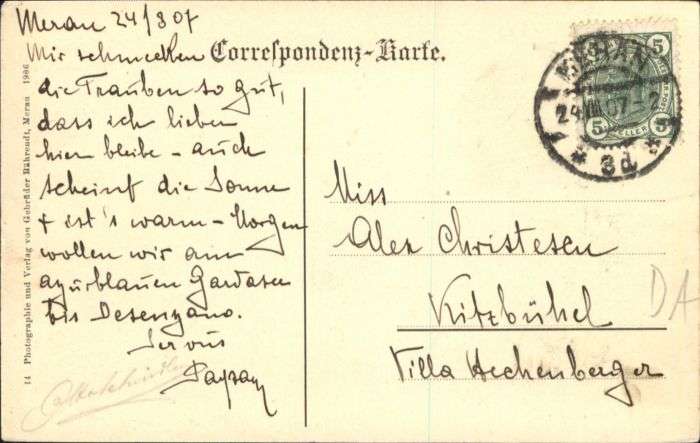 Meran 24/8 07
Correspondenz-Karte.
Mir schmecken
die Trauben so gut,
dass ich lieber
hier bleibe - auch
scheint die Sonne
+ ist's warm - Morgen
wollen wir am
azurblauen Gardasee
bis Desenzano.
Servus
Miss
Alex Christesen
Kitzbühel
Villa Hechenberger
MERAN
24.VIII.07-2
* 3d *
5 5
5 HELLER 5
DA
14 Photographie und Verlag von Gebrüder Bährendt, Meran 1906